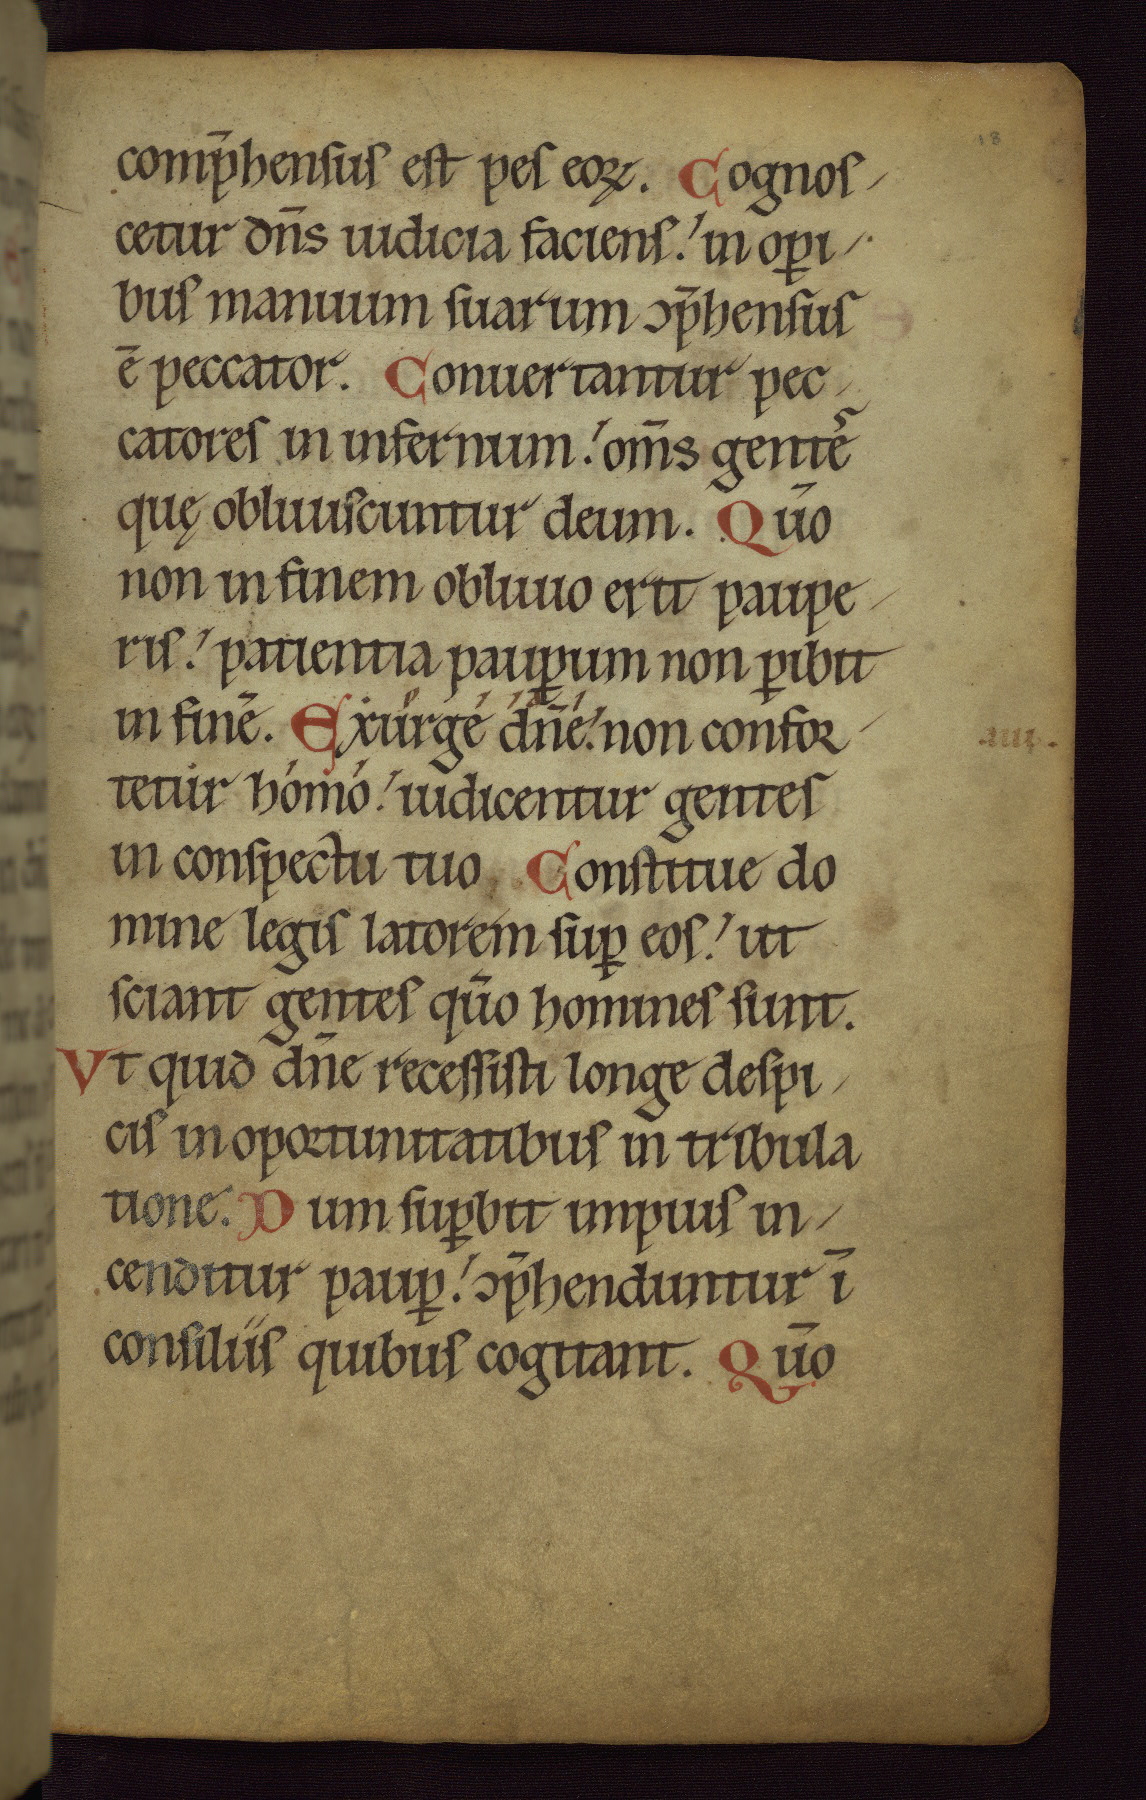 18
comp̄hensus est pes eoꝝ. Cognos-
cetur dn̄s iudicia faciens: in oꝑi-
bus manuum suarum ꝯp̄hensus
ē peccator. Conuertantur pec-
catores in infernum: om̄s gentes
quę obliuiscuntur deum. Qūo
non in finem obliuio erit paupe-
ris: patientia pauꝑum non ꝑibit
in finē. Exurge dn̄e: non confor-
.iiii.
tetur homo: iudicentur gentes
in conspectu tuo Constitue do
mine legis latorem suꝑ eos: ut
sciant gentes qūo homines sunt.
Vt quid dn̄e recessisti longe despi-
cis in oportunitatibus in tribula
tione. Dum suꝑbit impius in-
cenditur pauꝑ: ꝯp̄henduntur ī
consiliis quibus cogitant. Qūo